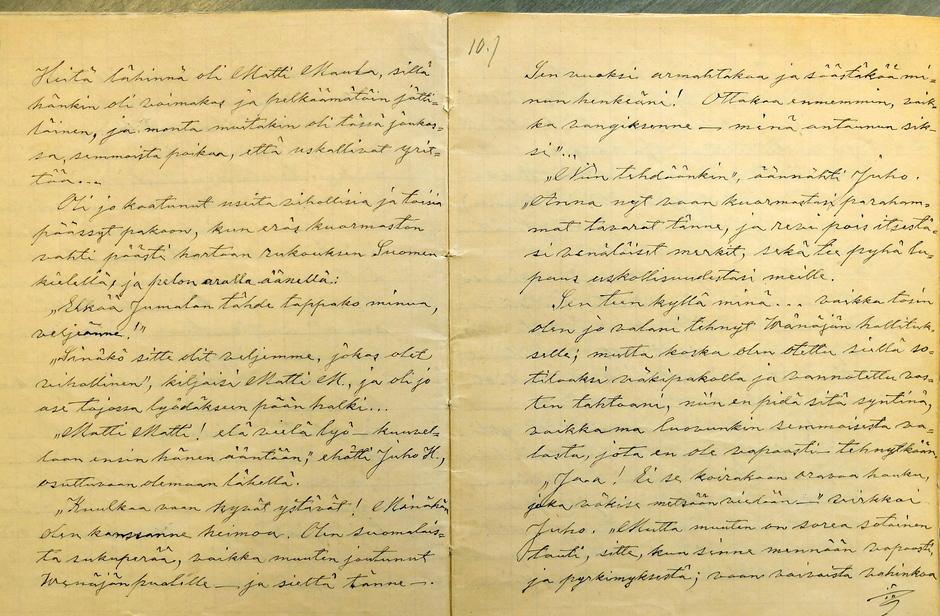 Heitä lähinnä oli Matti Mauka, sillä
hänkin oli voimakas ja pelkäämätöin jätti-
läinen, ja monta muitakin oli tässä joukos-
sa, semmoista poikaa, että uskallivat yrit-
tää...
Oli jo kaatunut useita vihollisia ja toisia
päässyt pakoon, kun eräs kuormaston
vahti päästi hartaan rukouksen Suomen
kielellä, ja pelon aralla äänellä:
„Elkää Jumalan tähde tappako minua,
veljeänne!"
„Sinäkö sitte olit veljemme, jokas olet
vihollinen", kiljaisi Matti M., ja oli jo
ase tojossa lyödäkseen pään halki...
„Matti Matti! elä vielä lyö — kuuvel-
laan ensin hänen ääntään," ehätti Juho K.,
osuttuvaan olemaan lähellä.
„Kuulkaa vaan hyvät ystävät! Minäkin
olen kanssanne heimoa. Olen suomalais-
ta sukuperää, vaikka muuten joutunut
Wenäjän puolelle — ja sieltä tänne —.
10.)
Sen vuoksi armahtakaa ja säästäkää mi-
nun henkeäni! Ottakaa ennemmin, vaik-
ka vangiksenne — minä antaunun sik-
si"...
„Niin tehdäänkin", äännähti Juho.
„Anna nyt vaan kuormastasi paraham-
mat tavarat tänne, ja revi pois itsestä-
si venäläiset merkit, sekä tee pyhä lu-
paus uskollisuudestasi meille.
Sen teen kyllä minä... vaikka tosin
olen jo valani tehnyt Wenäjän hallituk-
selle; mutta koska olen otettu sieltä so-
tilaaksi väkipakolla ja vannotettu vas-
ten tahtoani, niin en pidä sitä syntinä,
vaikka ma luovunkin semmoisesta va-
lasta, jota en ole vapaasti tehnytkään.
„Jaa! Ei se koirakaan oravaa hauku,
joka väkise metsään viedään —" virkkoi
Juho. „Mutta muuten on sorea sotainen
tauti, sitte, kun sinne mennään vapaasti
ja pyrkimyksestä; vaan vaivaista vahinkoa